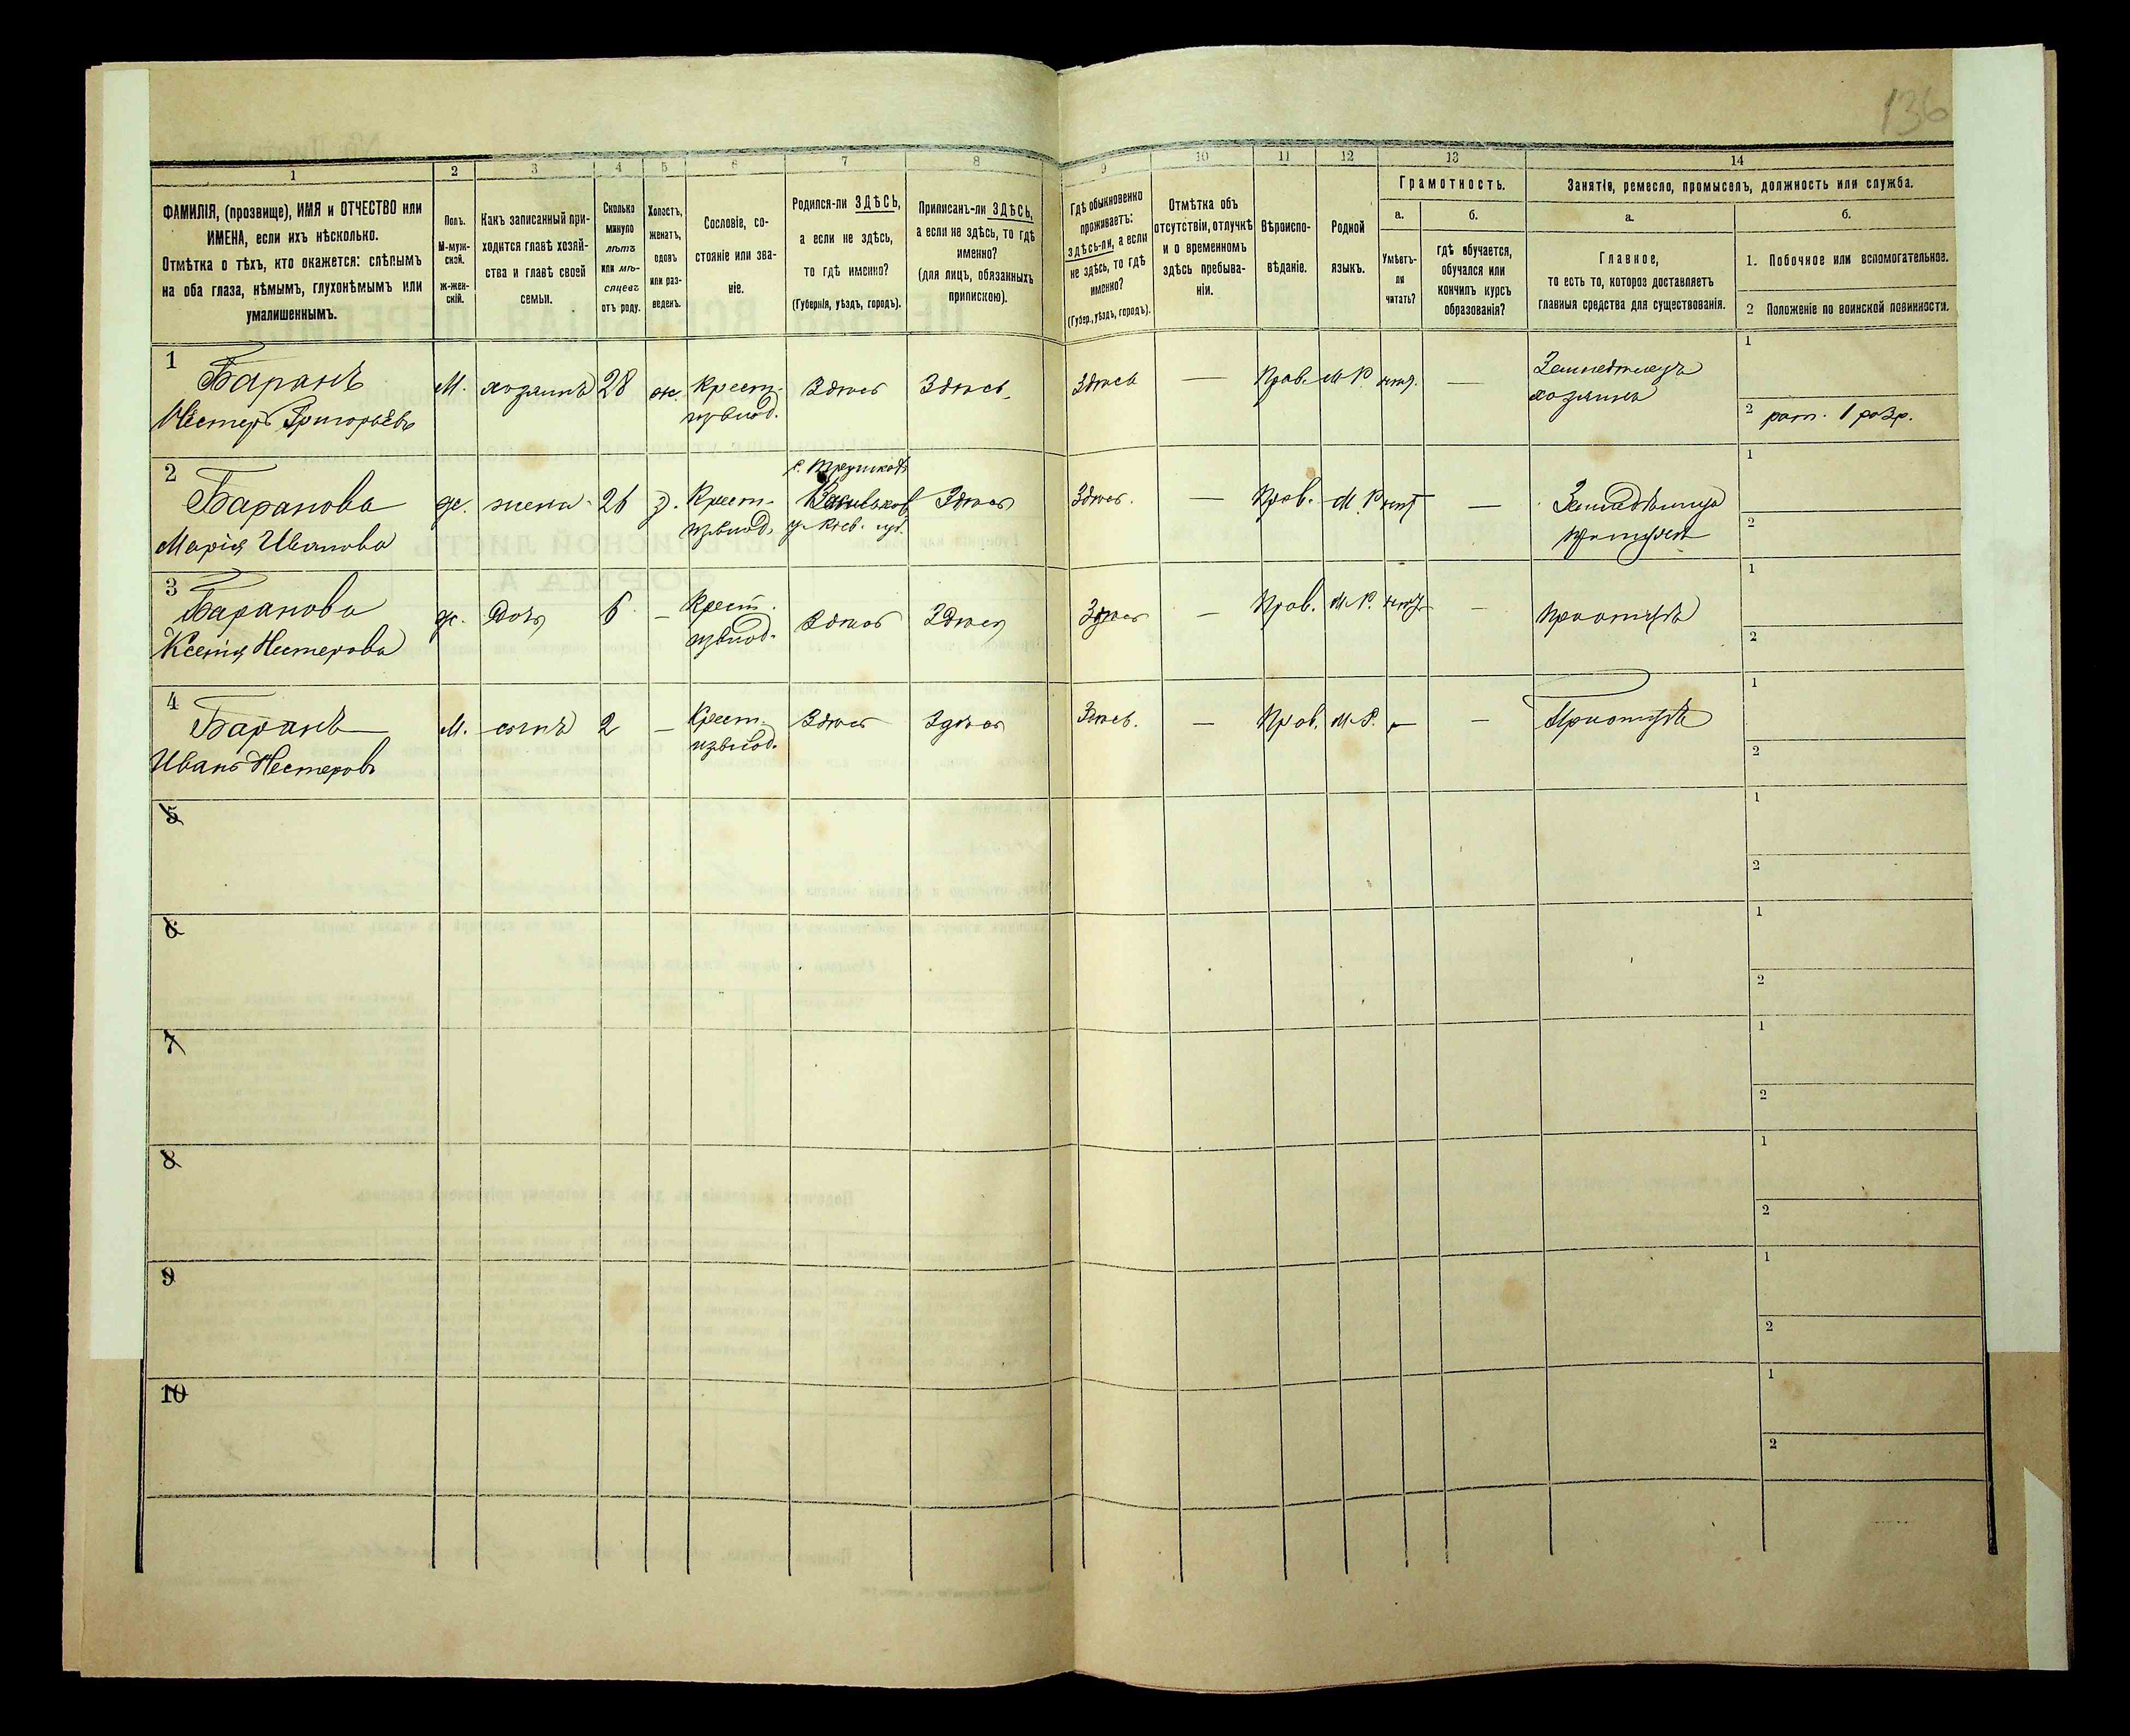 136
1 2 3 4 5 6 7 8 9 10 11 12 13 14
ФАМИЛІЯ, (прозвище), ИМЯ и ОТЧЕСТВО или
ИМЕНА, если ихъ нѣсколько.
Отмѣтка о тѣхъ, кто окажется: слѣпымъ
на оба глаза, нѣмымъ, глухонѣмымъ или
умалишеннымъ.
Полъ.
М-муж-
ской.
ж-жен-
скій.
Какъ записанный при-
ходится главѣ хозяй-
ства и главѣ своей
семьи.
Сколько
минуло
лѣтъ
или мѣ-
сяцевъ
отъ роду.
Холостъ,
женатъ,
вдовъ
или раз-
веденъ.
Сословіе, со-
стояніе или зва-
ніе.
Родился-ли ЗДѢСЬ,
а если не здѣсь,
то гдѣ именно?
(Губернія, уѣздъ, городъ).
Приписанъ-ли ЗДѢСЬ,
а если не здѣсь, то гдѣ
именно?
(для лицъ, обязанныхъ
припискою).
Гдѣ обыкновенно
проживаетъ:
здѣсь-ли, а если
не здѣсь, то гдѣ
именно?
(Губер., уѣздъ, городъ).
Отмѣтка объ
отсутствіи, отлучкѣ
и о временномъ
здѣсь пребыва-
ніи.
Вѣроиспо-
вѣданіе.
Родной
языкъ.
Грамотность.
а.
Умѣетъ-
ли
читать?
б.
гдѣ обучается,
обучался или
кончилъ курсъ
образованія?
Занятіе, ремесло, промыселъ, должность или служба.
а.
Главное,
то есть то, которое доставляетъ
главныя средства для существованія.
б.
1. Побочное или вспомогательное.
2 Положеніе по воинской повинности.
1
Баранъ
Нестеръ Григорьевъ
М. хозяинъ 28 ж. Крест.
Здѣсь Здѣсь Здѣсь — Прав. М.Р. нѣт. —
Земледѣлецъ
хозяинъ
1
2 рат. 1 розр.
2
Баранова
Марія Иванова
ж. жена 26 з. Крест.
Васильков.
у. Кіев. губ.
Здѣсь Здѣсь. — Прав. М.Р. нѣт —
1
2
3
Баранова
Ксенія Нестерова
ж. дочь 6 — Крест.
Здѣсь Здѣсь Здѣсь — Прав. М.Р. нѣт. —
1
2
4
Баранъ
Иванъ Нестеровъ
М. сынъ 2 — Крест.
Здѣсь Здѣсь Здѣсь. — Прав. М.Р. — —
1
2
5
1
2
6
1
2
7
1
2
8
1
2
9
1
2
10
1
2